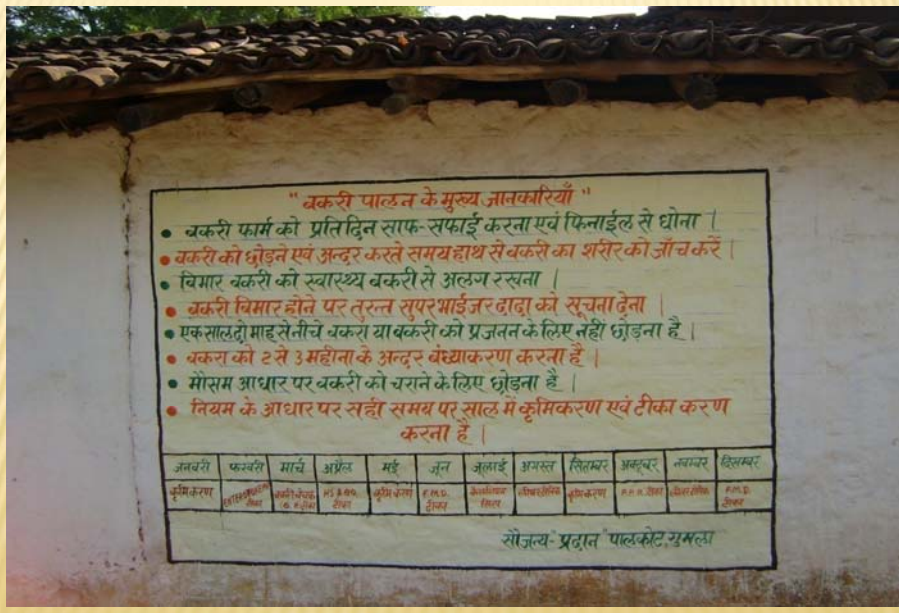 "वकरी पालन के मुख्य जानकारियाँ"
• वकरी फार्म को प्रतिदिन साफ-सफाई करना एवं फिनाईल से धोना |
• वकरी को छोड़ने एवं अन्दर करते समय हाथ से वकरी का शरीर को जाँच करें |
• विमार वकरी को स्वास्थ्य वकरी से अलग रखना |
• वकरी विमार होने पर तुरन्त सुपरभाईजर दादा को सूचना देना |
• एक साल दो माह से नीचे वकरा या वकरी को प्रजनन के लिए नहीं छोड़ना है |
• वकरा को 2 से 3 महीना के अन्दर वंध्याकरण करना है |
• मौसम आधार पर वकरी को चराने के लिए छोड़ना है |
• नियम के आधार पर सही समय पर साल में कृमिकरण एवं टीका करण
करना है |
जनवरी फरवरी मार्च अप्रैल मई जून जुलाई अगस्त सितम्बर अक्टूबर नवम्बर दिसम्बर
कृमिकरण टीका टीका टीका कृमि करण F.M.D. टीका कृमिकरण टीका F.M.D. टीका
सौजन्य- "प्रदान" पालकोट, गुमला